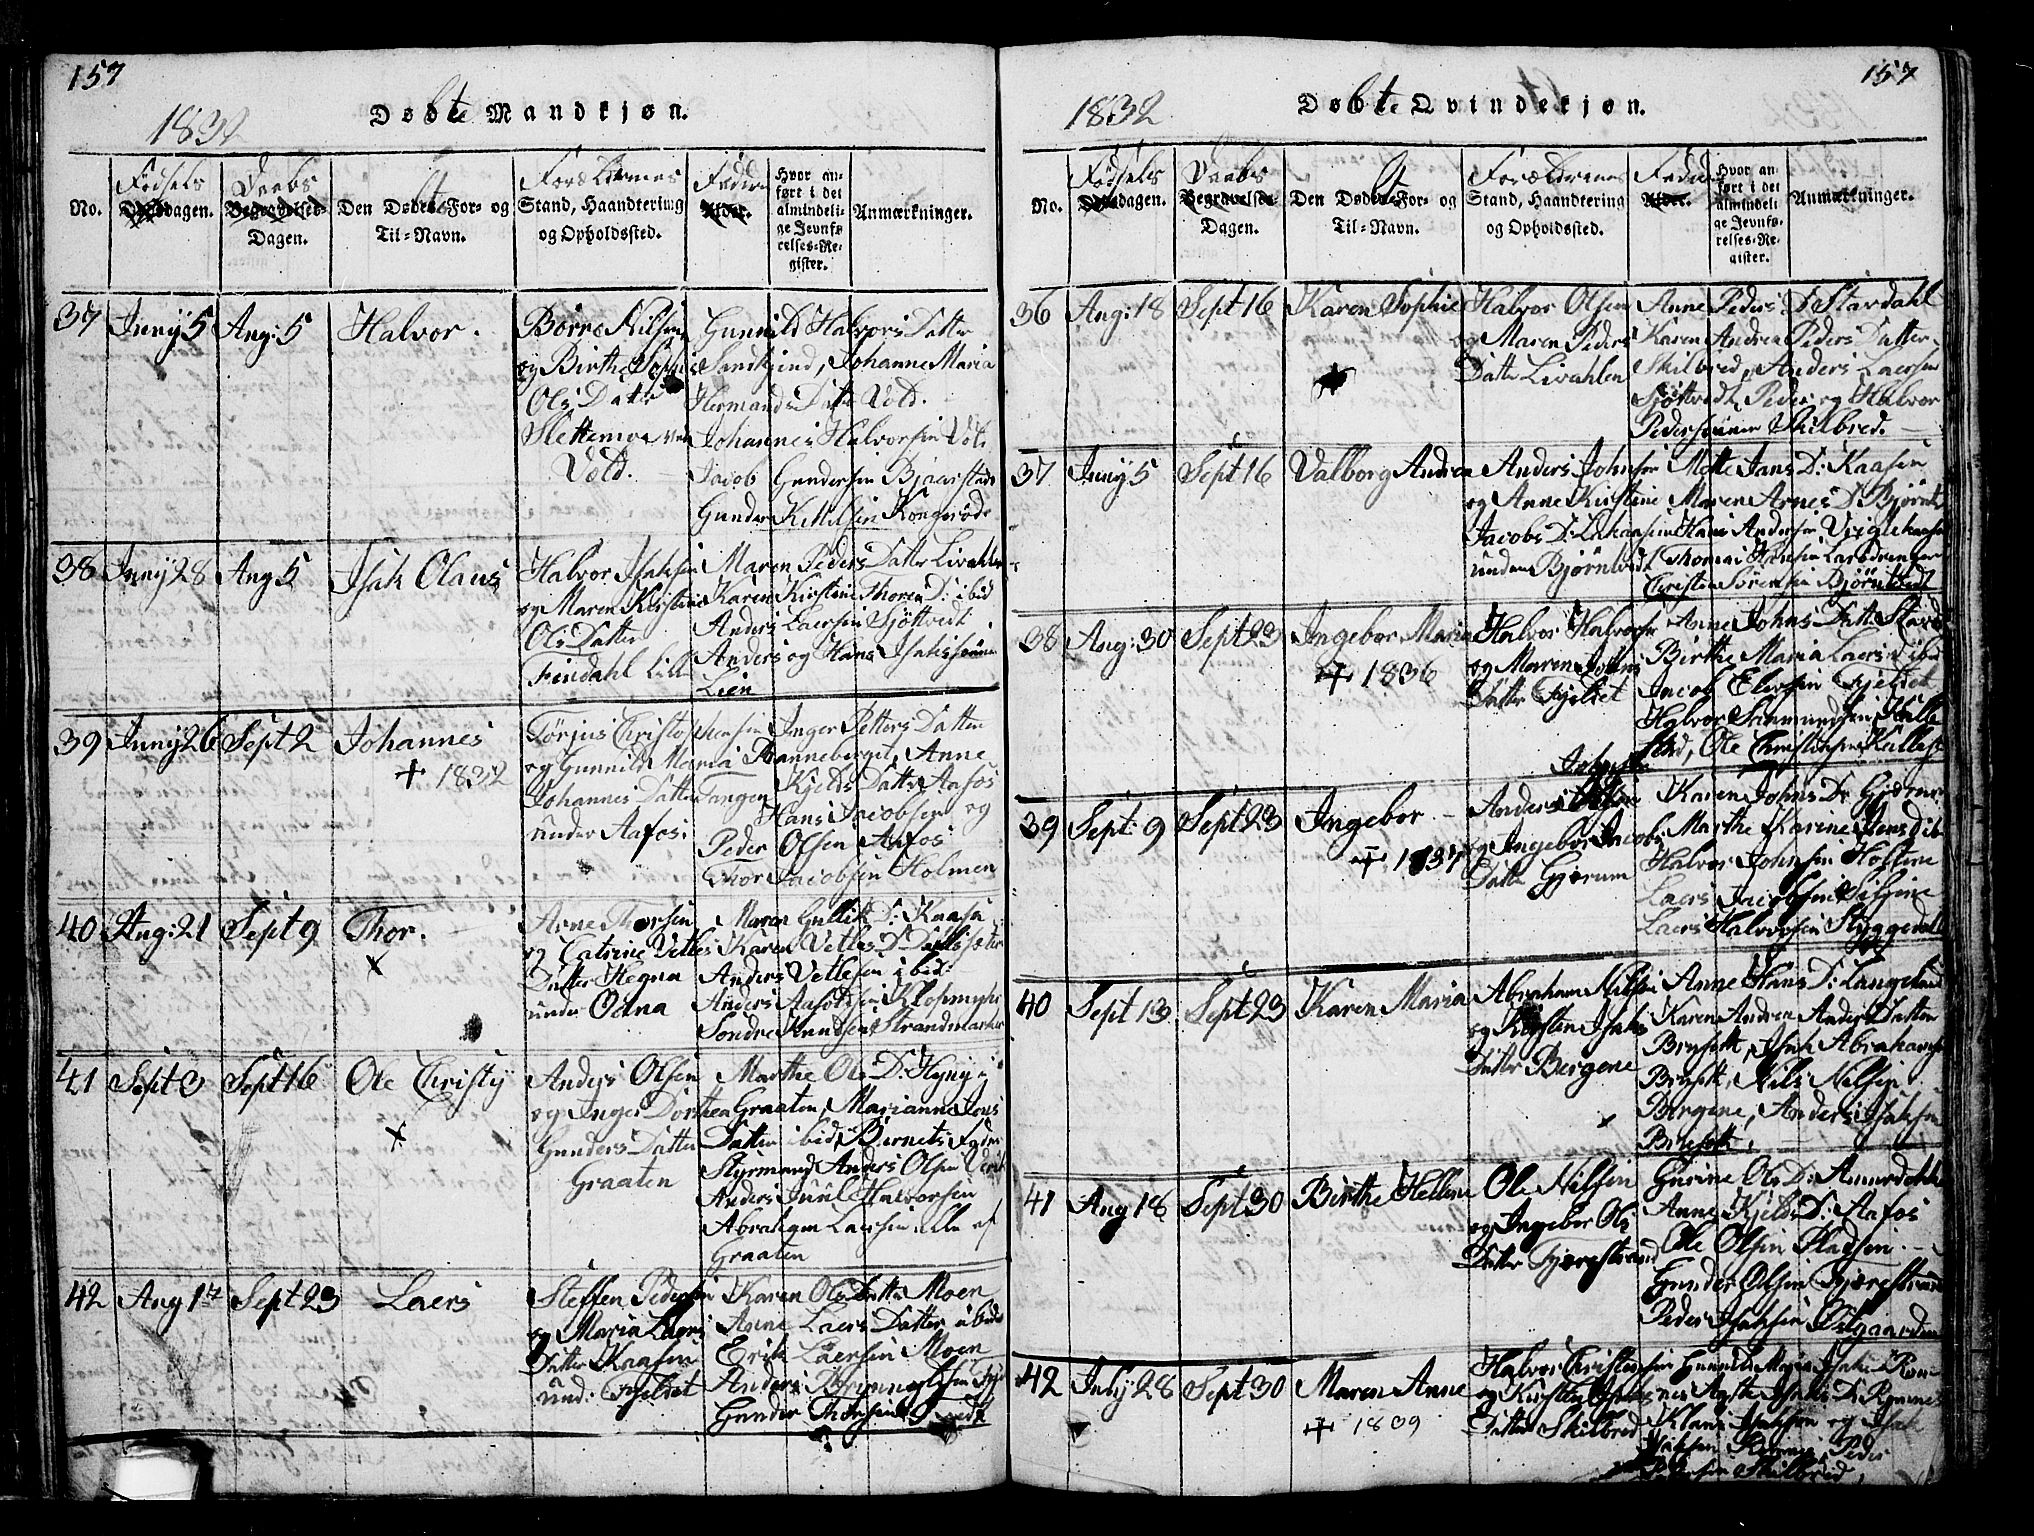 157
1832
Døbte Mandkjøn.
No.
Fødsels dagen.
Daabs Dagen.
Den Døbtes For- og Til-Navn.
Forældrenes Stand, Haandtering og Opholdssted.
Faddere
Hvor anført i det almindelige Jevnførelses-Register.
Anmærkninger.
37 Juny 5 Aug: 5 Halvor.
Børre Nilsen
og Birthe Sophie
Ols Datter
Slettemoe
Vold.
Gunnild Halvors Datter
Johanne Maria
Hermands Datter Vold.
Johannes Halvorsen Vold
Jacob Gundersen Bjaerstado
Gunder Kittilsen Kongerød
38 Juny 28 Aug 5 Isak Olaus
Halvor Isaksen
og Maren Kirstine
Ols Datter
Findahl Lill
Maren Peders Datter Livahlen
Karen Kirstine Thoren D: ibid
Anders Laersen Sjøttvedt
Anders og Hans Isakssønner
Lien
39 Juny 26 Sept 2 Johannes
+ 1832
Tørjus Christophersen
og Gunnild Maria
Johannes Datter Tangen
under Aafos:
Inger Petters Datter
Ranneberget, Anne
Kjelds Datter Aafos
Hans Jacobsen og
Peder Olsen Aafos
Thor Jacobsen Holmen
40 Aug: 21 Sept 9 Thor.
x
Arne Thorsen
og Catrine Vetles
Datter Hegna
under Odna
Maren Gullik D: Kaasa
Karen Vetles D:
Anders Vetlesen ibid:
Anders Aasoldsen Klopmyhr
Sondre Knudsen Strandmarker
41 Sept 3 Sept 16 Ole Christy
x
Anders Olsen
og Inger Dorthea
Gunders Datter
Graaten
Marthe Ols D: Hynyi
Graaten, Marianne Jens
Datter ibid,
Styrmand Anders Olsen
Anders Juul Halvorsen
Abraham Laersen alle af
Graaten
42 Aug 17 Sept 23 Laers
Steffen Pedersen
og Maria Laers
Datter Kaasen
und: Fjeldet
Karen Ols Datter Moen
Anne Laers Datter ibid
Erik Laersen Moen
Anders Brynnelsen
Gunder Thorsen
157
1832
Døbte Qvindekjøn.
No.
Fødsels dagen.
Daabs Dagen.
Den Døbtes For- og Til-Navn.
Forældrenes Stand, Haandtering og Opholdssted.
Faddere
Hvor anført i det almindelige Jevnførelses-Register.
Anmærkninger.
36 Aug: 18 Sept 16 Karen Sophie
Halvor Olsen
og Maren Peders
Datter Livahlen
Anne Peders D Stavdahl
Karen Andrea Peders Datter
Skilbred, Anders Laersen
Sjøttvedt, Peder og Halvor
Pedersønner Skilbred.
37 Juny 5 Sept 16 Valborg Andrea
Anders Johnsen
og Anne Kirstine
Jacobs D:
under Bjørntvedt
Mette Jans D: Kaasen
Maren Arnes D Bjørntv
Hans Andersen
Thomas
Christen Sørensen Bjørntvedt
38 Aug: 30 Sept 23 Ingebor Maria
+ 1836
Halvor Halvorsen
og Maren
Datter Fjeldet
Anne Johns Datter
Birthe Maria Laers D ibid
Jacob Elersen Fjeldet
Halvor Simmundsen
Ole Christensen
39 Sept: 9 Sept 23 Ingebor
+ 1837
Johnsen
Anders
og Ingebor Jacobs
Datter Gjerum
Karen Johns D:
Marthe Karine Jens D ib
Halvor Johnsen Holtene
Laers Jacobsen
Laers Halvorsen Styggedahl
40 Sept 13 Sept 23 Karen Maria
Abraham Nilsen
og Kirsten Isaks
Datter Bergene
Anne Hans D: Langeland
Karen Andrea Anders Datter
Brusett, Isak Abrahams
Brusett, Nils Nilsen
Bergene, Anders Isaksen
Brusett.
41 Aug 18 Sept 30 Birthe Hellene
Ole Nilsen
og Ingebor Ols
Datter Fjærestrand
Gurine Ols D:
Anne Kjelds D: Aafos
Ole Olsen Pladsen
Gunder Olsen Fjærestrand
Peder Isaksen Østgaarden
42 July 28 Sept 30 Maren Anne
+ 1839
Halvor Christensen
og Kirstine
Datter Skilbred
Gunnild Maria Isaks D
Klaus Isaksen og Isak
Isaksen Romnes, Peder
Pedersen Skilbred